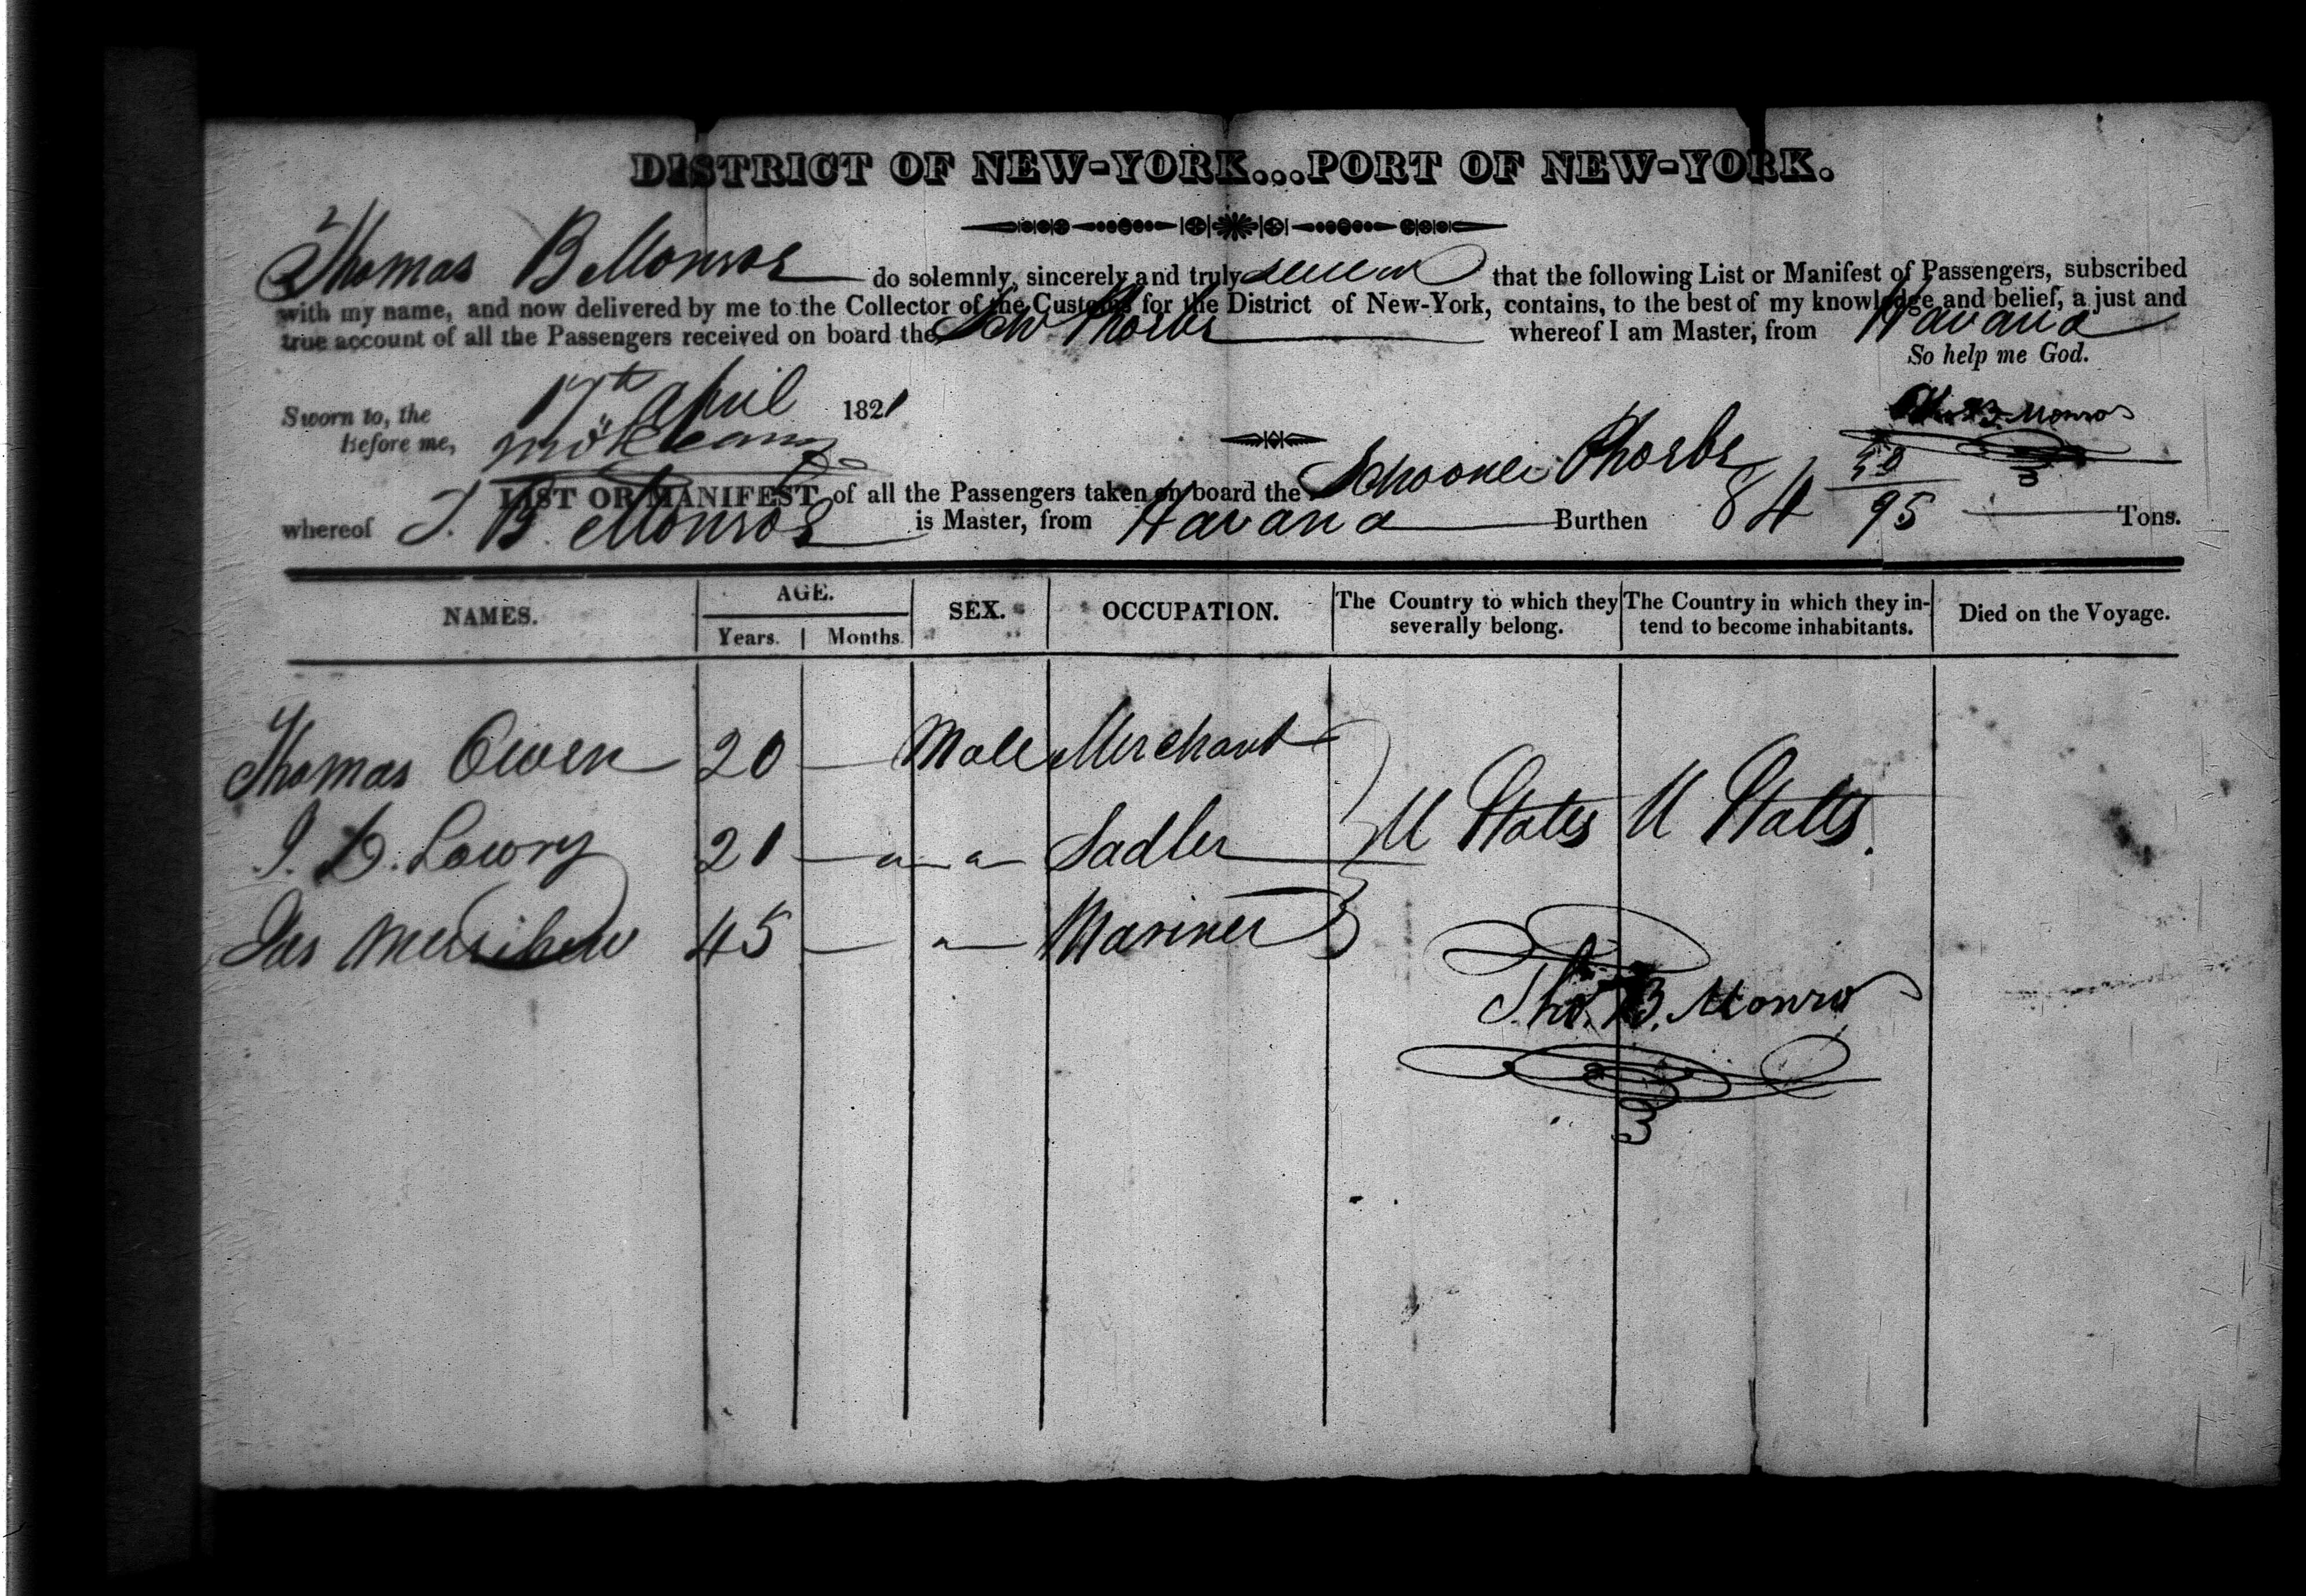 DISTRICT OF NEW-YORK...PORT OF NEW-YORK.
Thomas B Monroe do solemnly, sincerely and truly swear that the following List or Manifest of Passengers, subscribed
with my name, and now delivered by me to the Collector of the Customs for the District of New-York, contains, to the best of my knowledge and belief, a just and
true account of all the Passengers received on board the Schr Phoebe whereof I am Master, from Havana
So help me God.
Sworn to, the 17th April 1821
Before me,
Thos B. Monro
LIST OR MANIFEST of all the Passengers taken on board the Schooner Phoebe
whereof T. B. Monroe is Master, from Havana Burthen 84 50/95 Tons.
NAMES. AGE. SEX. OCCUPATION. The Country to which they severally belong. The Country in which they intend to become inhabitants. Died on the Voyage.
Years. Months.
Thomas Owen 20 — Male Merchant
J. D. Lowry 21 — " " Sadler U States U States.
Jas Merrihew 45 — " Mariner
Tho. B. Monro